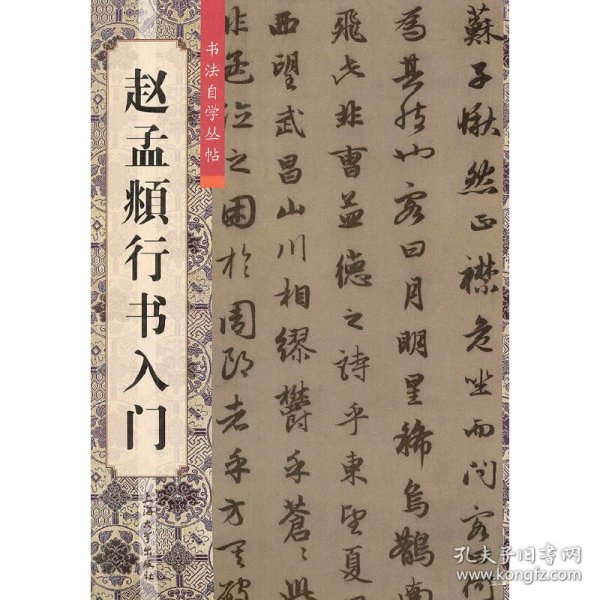 赵孟頫行书入门
书法自学丛帖
上海大学出版社
蘇子愀然正襟危坐而問客
為其然也客曰月明星稀烏鵲南
飛此非曹孟德之詩乎東望夏
西望武昌山川相繆鬱乎蒼〻此
非孟德之困於周郎者乎方其破
孔夫子旧书网
www.kongfz.com